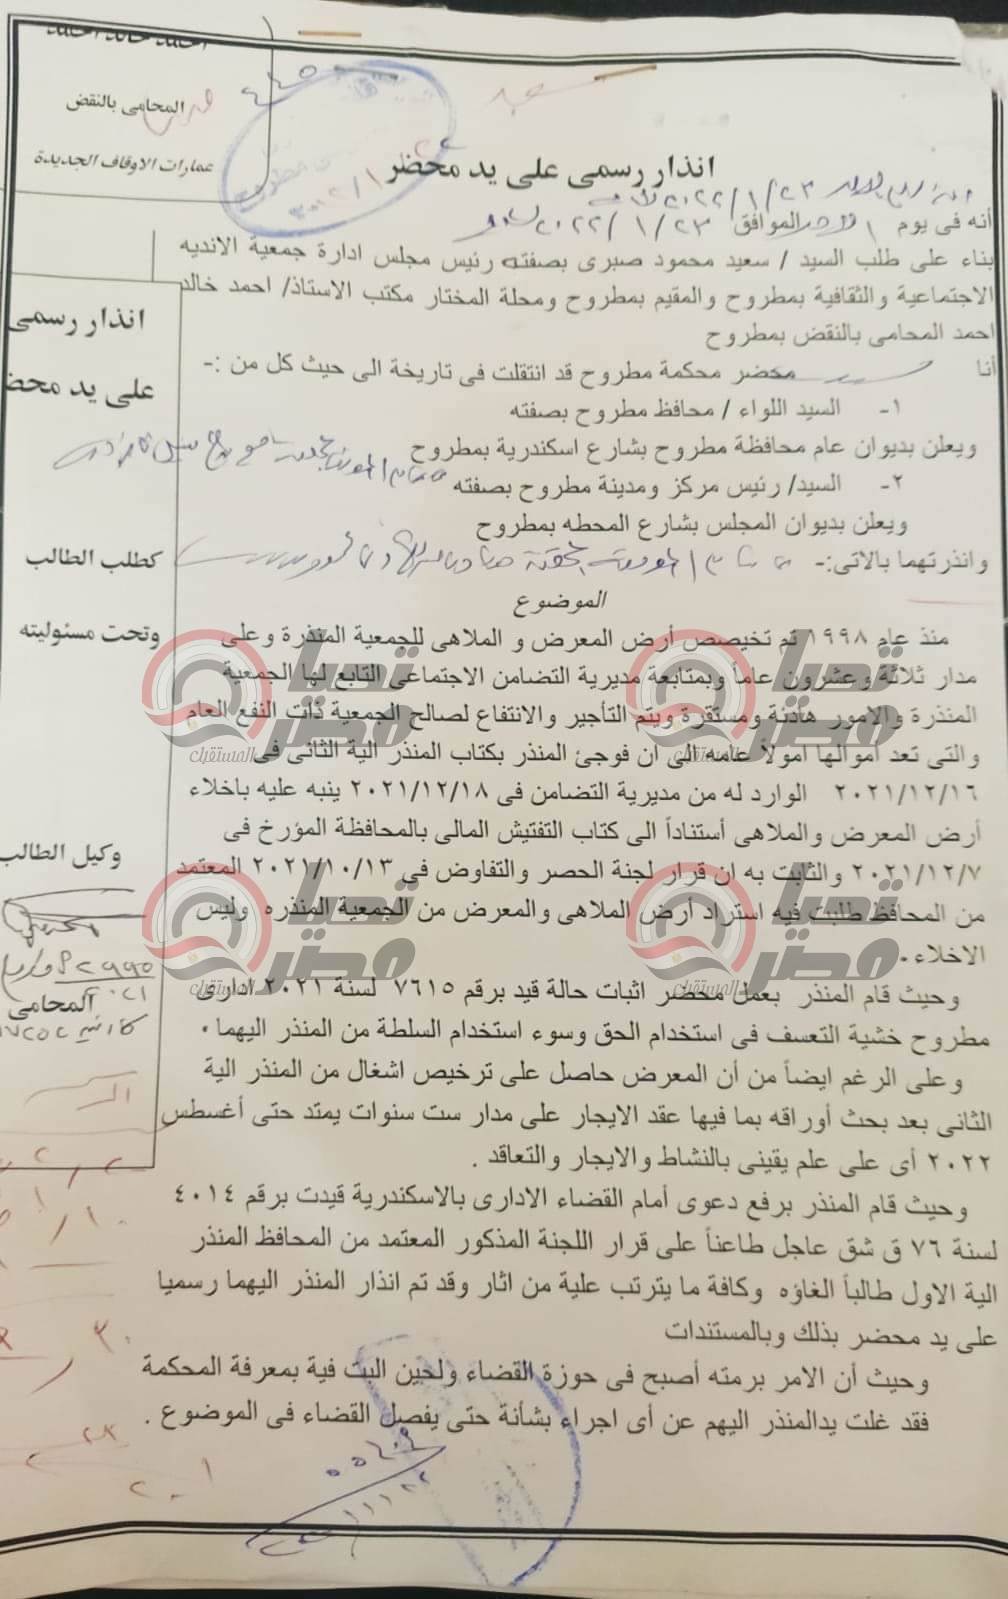 احمد خالد احمد
المحامى بالنقض
عمارات الاوقاف الجديدة
انذار رسمى على يد محضر
أنه فى يوم الموافق ٢٣/ ١ /٢٠٢٢
بناء على طلب السيد / سعيد محمود صبرى بصفته رئيس مجلس ادارة جمعية الانديه
الاجتماعية والثقافية بمطروح والمقيم بمطروح ومحلة المختار مكتب الاستاذ/ احمد خالد
احمد المحامى بالنقض بمطروح
أنا محضر محكمة مطروح قد انتقلت فى تاريخة الى حيث كل من :-
١- السيد اللواء / محافظ مطروح بصفته
ويعلن بديوان عام محافظة مطروح بشارع اسكندرية بمطروح
٢- السيد/ رئيس مركز ومدينة مطروح بصفته
ويعلن بديوان المجلس بشارع المحطه بمطروح
وانذرتهما بالاتى:-
الموضوع
منذ عام ١٩٩٨ تم تخيصص أرض المعرض و الملاهى للجمعية المنذرة وعلى
مدار ثلاثة وعشرون عاماً وبمتابعة مديرية التضامن الاجتماعى التابع لها الجمعية
المنذرة والامور هادئة ومستقرة ويتم التأجير والانتفاع لصالح الجمعية ذات النفع العام
والتى تعد اموالها امولاً عامه الى ان فوجئ المنذر بكتاب المنذر الية الثانى فى
٢٠٢١/١٢/١٦ الوارد له من مديرية التضامن فى ٢٠٢١/١٢/١٨ ينبه عليه باخلاء
أرض المعرض والملاهى أستناداً الى كتاب التفتيش المالى بالمحافظة المؤرخ فى
٢٠٢١/١٢/٧ والثابت به ان قرار لجنة الحصر والتفاوض فى ٢٠٢١/١٠/١٣ المعتمد
من المحافظ طلبت فيه استراد أرض الملاهى والمعرض من الجمعية المنذره وليس
الاخلاء .
وحيث قام المنذر بعمل محضر اثبات حالة قيد برقم ٧٦١٥ لسنة ٢٠٢١ ادارى
مطروح خشية التعسف فى استخدام الحق وسوء استخدام السلطة من المنذر اليهما .
وعلى الرغم ايضاً من أن المعرض حاصل على ترخيص اشغال من المنذر الية
الثانى بعد بحث أوراقه بما فيها عقد الايجار على مدار ست سنوات يمتد حتى أغسطس
٢٠٢٢ أى على علم يقينى بالنشاط والايجار والتعاقد .
وحيث قام المنذر برفع دعوى أمام القضاء الادارى بالاسكندرية قيدت برقم ٤٠١٤
لسنة ٧٦ ق شق عاجل طاعناً على قرار اللجنة المذكور المعتمد من المحافظ المنذر
الية الاول طالباً الغاؤه وكافة ما يترتب علية من اثار وقد تم انذار المنذر اليهما رسميا
على يد محضر بذلك وبالمستندات
وحيث أن الامر برمته أصبح فى حوزة القضاء ولحين البت فية بمعرفة المحكمة
فقد غلت يدالمنذر اليهم عن أى اجراء بشأنة حتى يفصل القضاء فى الموضوع .
انذار رسمى
على يد محضر
كطلب الطالب
وتحت مسئوليته
وكيل الطالب
المحامى
تحيا مصر
المستقبل
تحيا مصر
المستقبل
تحيا مصر
المستقبل
تحيا مصر
المستقبل